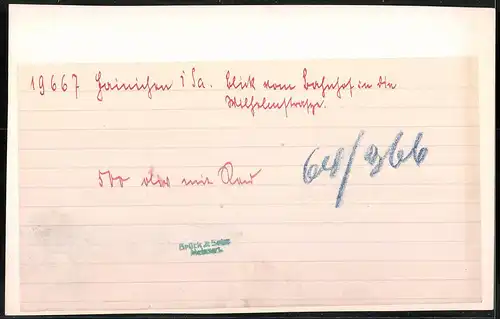 19667 Hainichen i Sa. Blick vom Bahnhof in die
Wilhelmstrasse.
500 olor mit Rand
64/366
Brück & Sohn
Meissen.